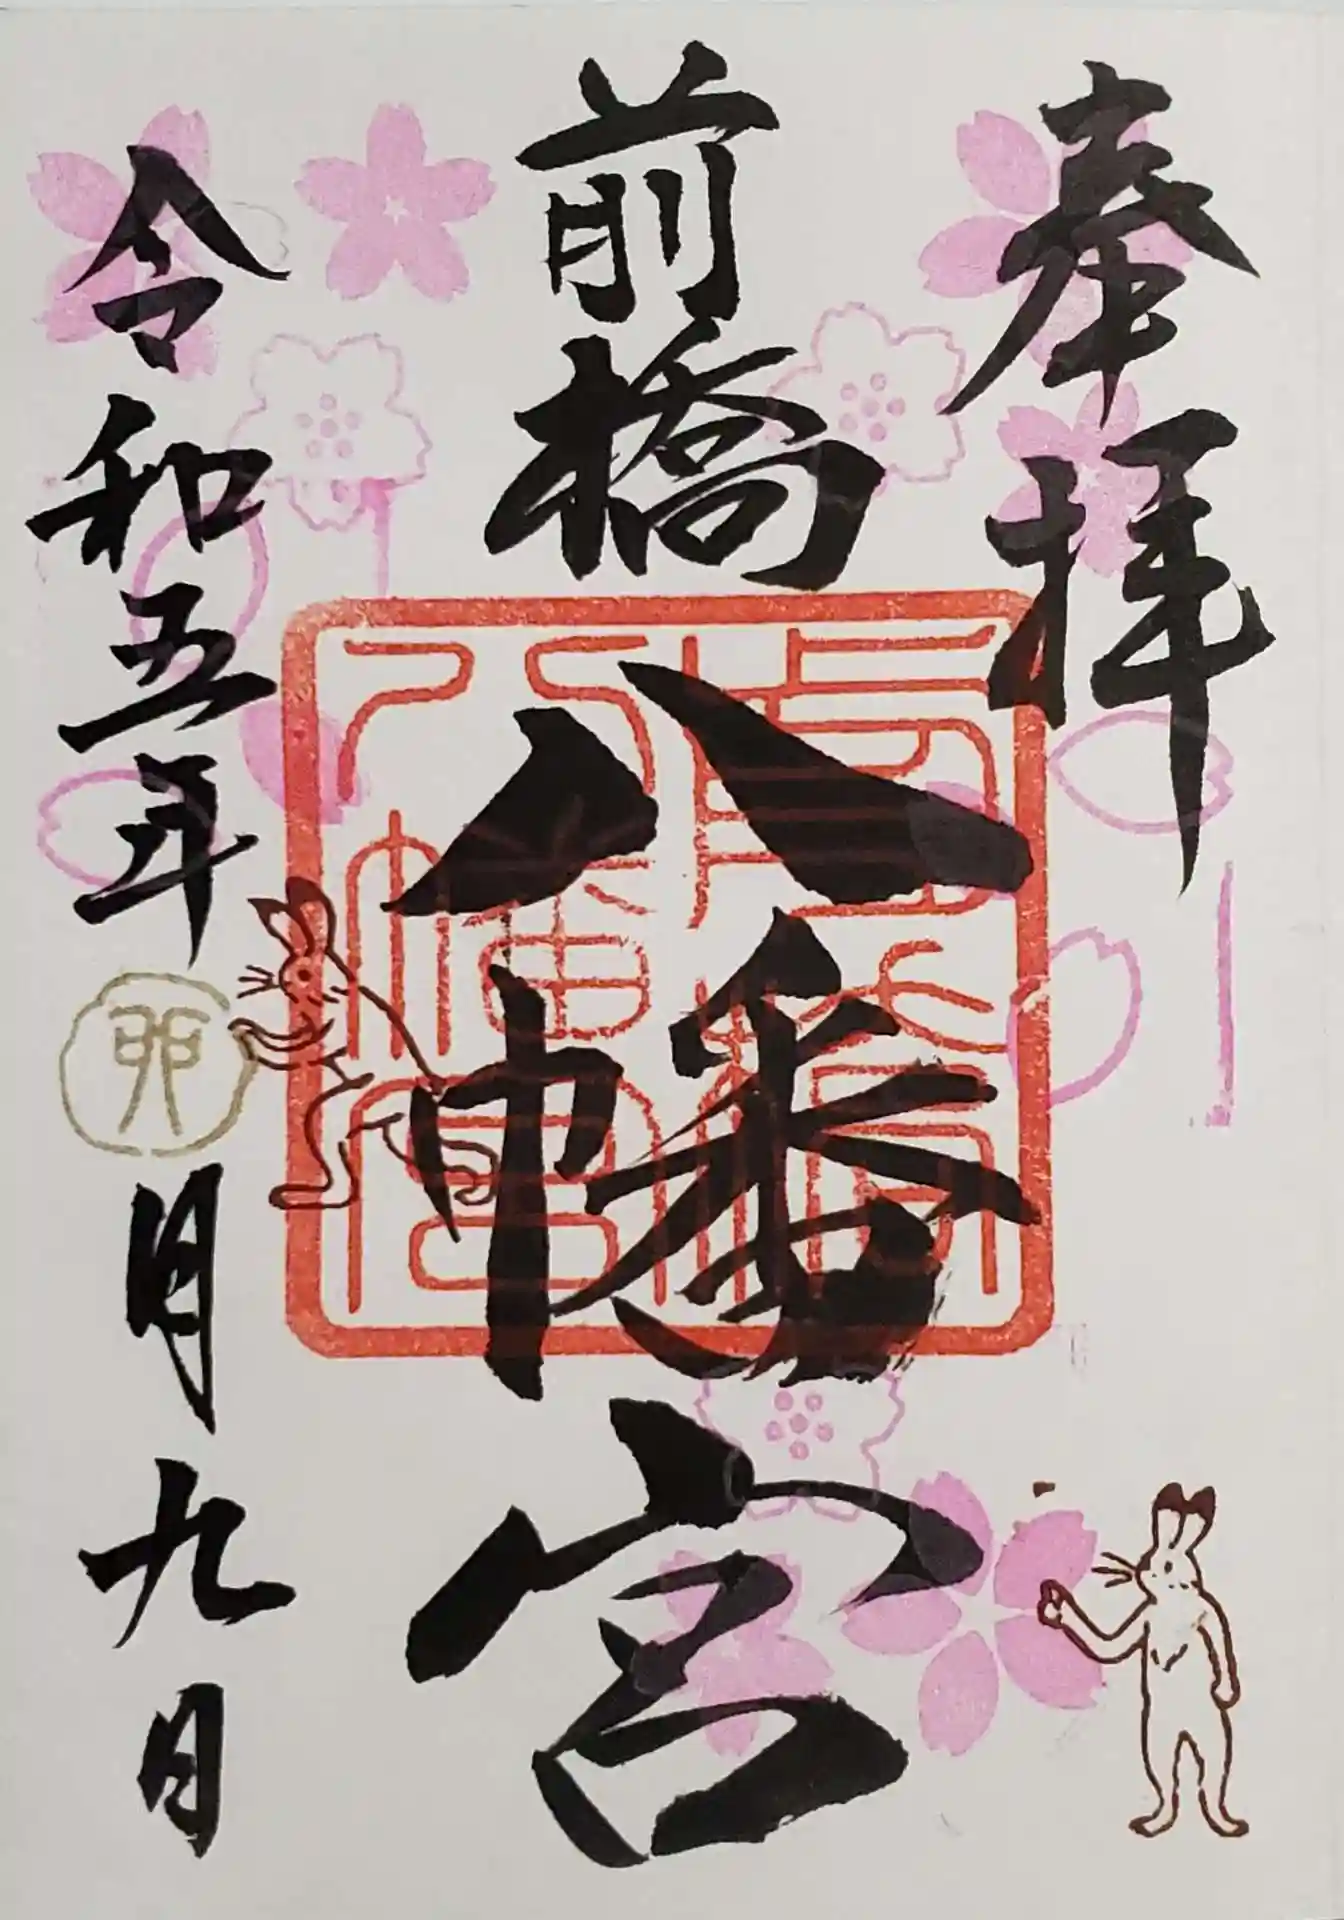 奉拝
前橋
八幡宮
令和五年卯月九日
八幡宮